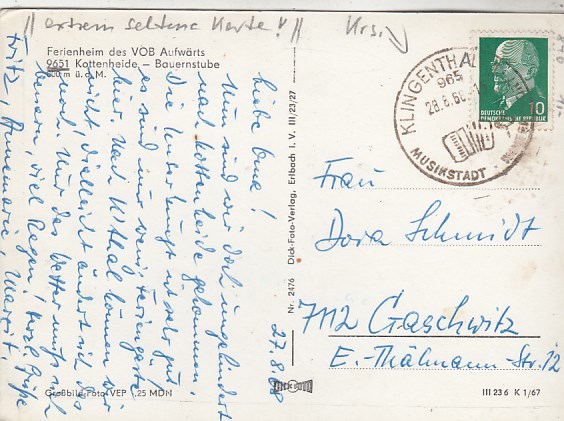 || extrem seltene Karte! ||
Krs. ↗
Ferienheim des VOB Aufwärts
9651 Kottenheide – Bauernstube
800 m ü. d. M.
Liebe Oma!
Nun sind wir doch ungehindert
nach Kottenheide gekommen.
Die Unterkunft ist sehr gut,
es sind nur wenig Feriengäste
hier. Nach Kthal können wir
nicht, vielleicht ändert sich das
noch. Nur das Wetter muß sich
bessern, viel Regen! Herzl. Grüße
Fritz, Annemarie, Margit,
27.8.68
Nr. 2476 Dick-Foto-Verlag, Erlbach I. V. III/23/27
DICK FOTO
KLINGENTHAL
965
28.8.68
MUSIKSTADT
DEUTSCHE
DEMOKRATISCHE REPUBLIK
10
Frau
Dora Schmidt
7112 Gaschwitz
E.-Thälmann-Str. 12
Großbild-Foto VEP .25 MDN
III 23 6 K 1/67